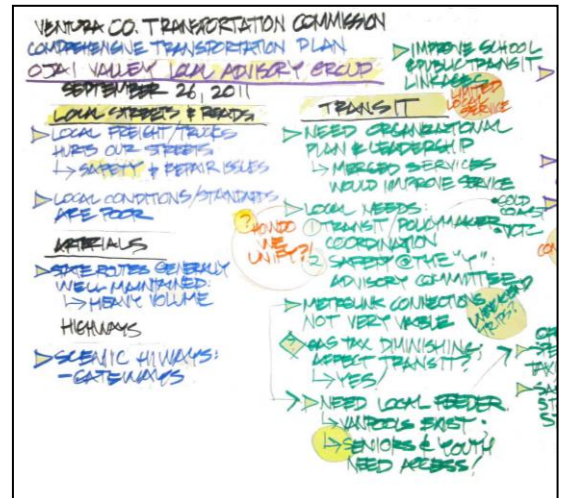 VENTURA CO. TRANSPORTATION COMMISSION
COMPREHENSIVE TRANSPORTATION PLAN
OJAI VALLEY LOCAL ADVISORY GROUP
SEPTEMBER 26, 2011
LOCAL STREETS & ROADS
LOCAL FREIGHT/TRUCKS
HURTS OUR STREETS
↳ SAFETY & REPAIR ISSUES
LOCAL CONDITIONS/STANDARDS
ARE POOR
ARTERIALS
STATE ROUTES GENERALLY
WELL MAINTAINED:
↳ HEAVY VOLUME
HIGHWAYS
SCENIC HIWAYS:
- GATEWAYS
?
HOW DO
WE
UNIFY?!
IMPROVE SCHOOL
& PUBLIC TRANSIT
LINKAGES
LIMITED
LOCAL
SERVICE
TRANSIT
NEED ORGANIZATIONAL
PLAN & LEADERSHIP
↳ MERGED SERVICES
WOULD IMPROVE SERVICE
LOCAL NEEDS:
1 TRANSIT POLICYMAKER
COORDINATION
2 SAFETY @ THE "Y":
ADVISORY COMMITTEE
• GOLD
COAST
• VCTC
METROLINK CONNECTIONS
NOT VERY VIABLE
WEEKEND
TRIPS?
GAS TAX DIMINISHING
AFFECT TRANSIT?
↳ YES!
NEED LOCAL FEEDER
↳ VANPOOLS EXIST
↳ SENIORS & YOUTH
NEED ACCESS!